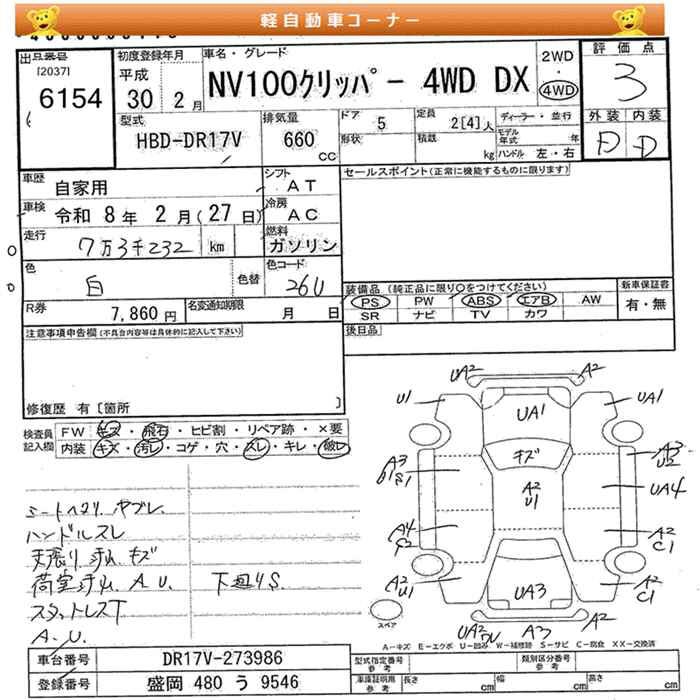 軽自動車コーナー
出品番号 初度登録年月 車名・グレード 2WD 評価点
[2037] 平成 NV100クリッパー 4WD DX 4WD 3
6154 30 2月
型式 排気量 ドア 定員 ディーラー・並行 外装 内装
HBD-DR17V 660 CC 5 2[4]人 モデル年式 年 D D
形状 積載 kg ハンドル 左・右
車歴 自家用 シフト AT セールスポイント(正常に機能するものに限ります)
車検 令和 8年 2月(27日) 冷房 AC
走行 7万3千232 km 燃料 ガソリン
色 白 色替 色コード 26U
装備品 (純正品に限り〇をつけてください) 新車保証書
PS PW ABS エアB AW 有・無
SR ナビ TV カワ
R券 7,860円 名変通知期限 月 日
後日品
注意事項申告欄(不具合内容等は具体的に記入して下さい)
修復歴 有〔箇所 〕
検査員記入欄 FW キズ・飛石・ヒビ割・リペア跡・×要
内装 キズ・汚レ・コゲ・穴・スレ・キレ・破レ
シートヘタリ ヤブレ
ハンドルスレ
天張り汚レ キズ
荷室汚レ A.U. 下廻りS
スタットレスT
A.U.
UA2 A2
U1 UA1 UA1
キズ
A3 S1 A2 U1 A3 U2
UA4
A4 A2 C1
A2 U1 UA3 A2 C1
UA2 A3 A2
スペア
A-キズ E-エクボ U-凹み W-補修跡 S-サビ C-腐食 XX-交換済
車台番号 DR17V-273986 型式指定番号 参考 類別区分番号 参考
登録番号 盛岡 480 う 9546 車庫証明用 参考 長さ cm 幅 cm 高さ cm